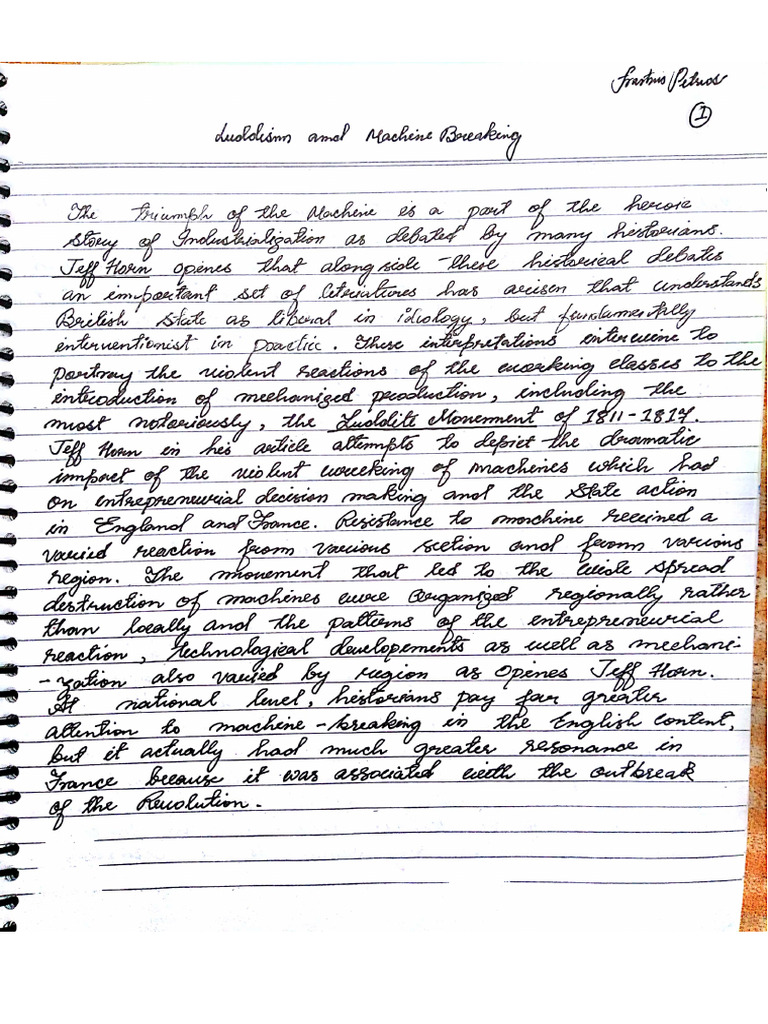 Petros
1
Luddism and Machine Breaking
The triumph of the Machine is a part of the heroic
story of Industrialization as debated by many historians.
Jeff Horn opines that alongside these historical debates
an important set of literatures has arisen that understands
British State as liberal in ideology, but fundamentally
interventionist in practic. These interpretations interwine to
portray the violent reactions of the working classes to the
introduction of mechanized production, including the
most notoriously, the Luddite Movement of 1811-1817.
Jeff Horn in his article attempts to depict the dramatic
impact of the violent wrecking of machines which had
on entrepreneurial decision making and the State action
in England and France. Resistance to machine received a
varied reaction from various section and from various
region. The movement that led to the wide spread
destruction of machines were organized regionally rather
than locally and the patterns of the entrepreneurial
reaction, technological developements as well as mechani-
-zation also varied by region as opines Jeff Horn.
At national level, historians pay far greater
attention to machine-breaking in the English content,
but it actually had much greater resonance in
France because it was associated with the outbreak
of the Revolution.